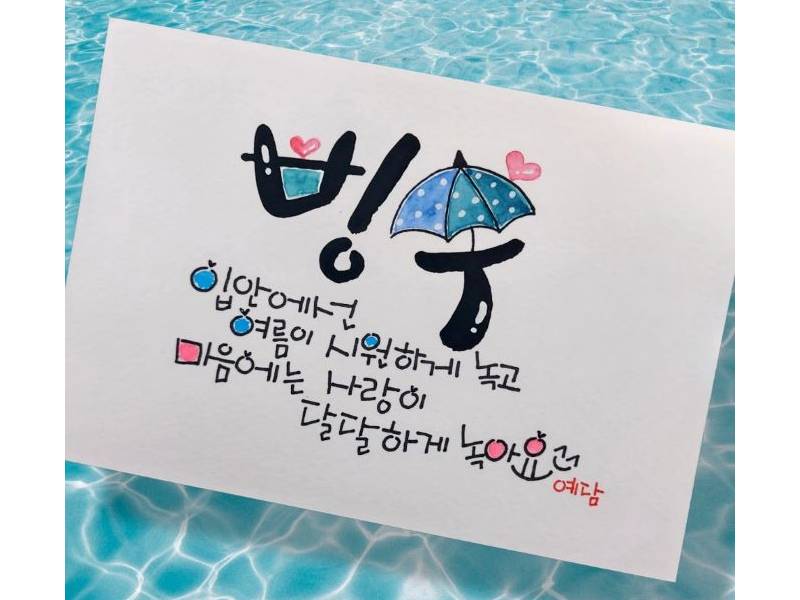 빙수
입안에선
여름이 시원하게 녹고
마음에는 사랑이
달달하게 녹아요
예담